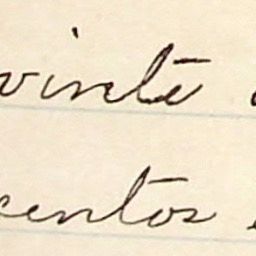 vinte
centos